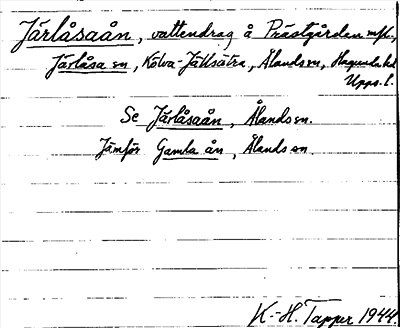 Järlåsaån, vattendrag å Prästgården mfl.,
Järlåsa sn, Kölva-Jällsätra, Ålands sn, Hagunda hd
Upps. l.
Se Järlåsaån, Ålands sn.
Jämför Gamla ån, Ålands sn.
K.-H. Tapper 1944.